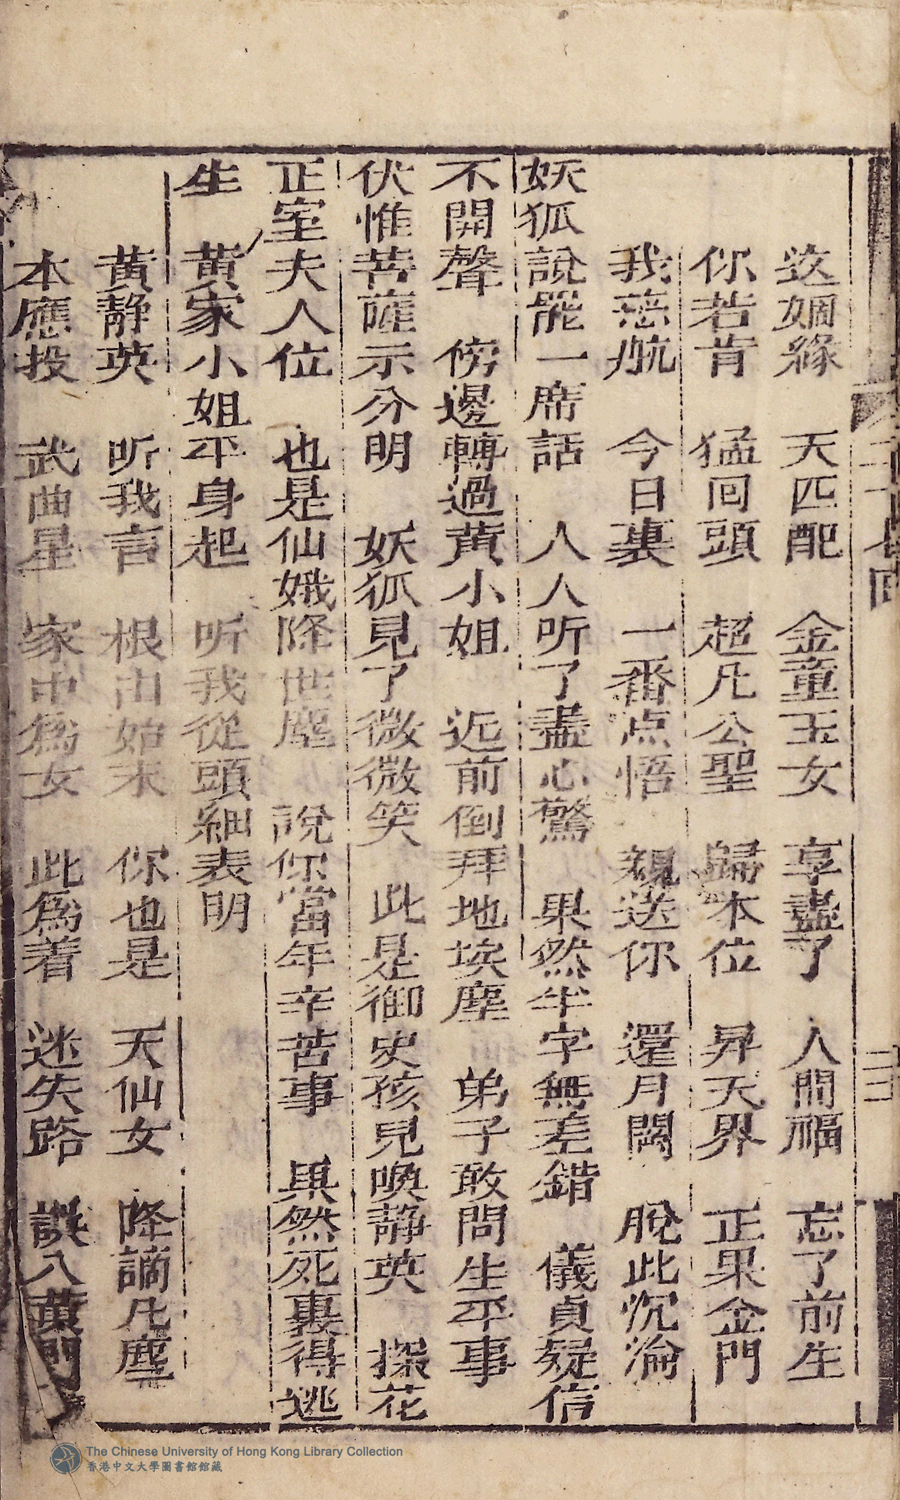 这姻緣　天匹配　金童玉女　享盡了　人間福　忘了前生
你若肯　猛回頭　超凡公聖　歸本位　昇天界　正果金門
我慈航　今日裏　一番点悟　親送你　還月闕　脫此沉淪
妖狐說罷一席話　人人听了盡心驚　果然半字無差錯　儀貞疑信
不開聲　傍邊轉過黃小姐　近前倒拜地埃塵　弟子敢問生平事
伏惟菩薩示分明　妖狐見了微微笑　此是御史孩兒喚靜英　探花
正室夫人位　也是仙娥降世塵　說你當年辛苦事　果然死裏得逃
生　黃家小姐平身起　听我從頭細表明
黃靜英　听我言　根由始末　你也是　天仙女　降謫凡塵
本應投　武曲星　家中為女　此為着　迷失路　誤入黃門
二十七回
二三
The Chinese University of Hong Kong Library Collection
香港中文大學圖書館館藏